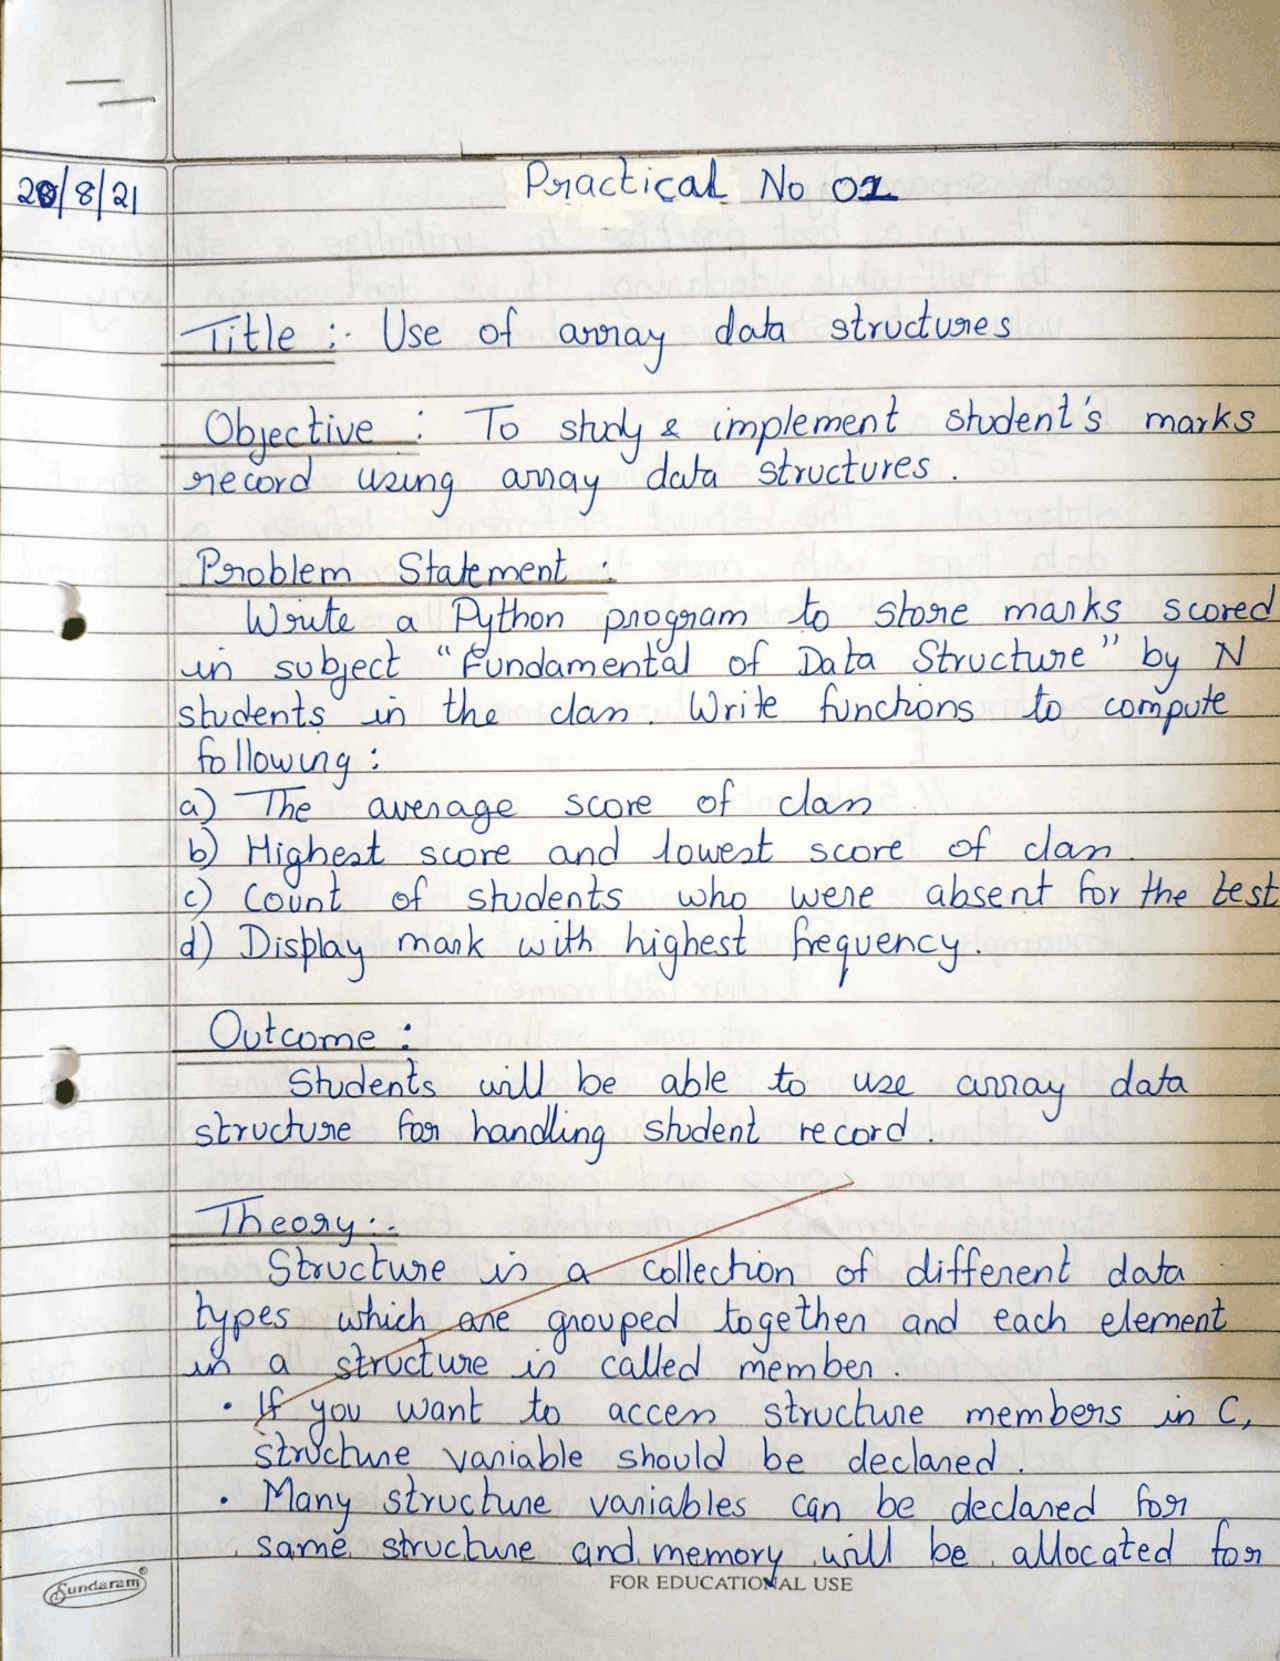 20/8/21
Practical No 01
Title :- Use of array data structures
Objective : To study & implement student's marks
record using array data structures.
Problem Statement :
Write a Python program to store marks scored
in subject "Fundamental of Data Structure" by N
students in the class. Write functions to compute
following :
a) The average score of class.
b) Highest score and lowest score of class.
c) Count of students who were absent for the test
d) Display mark with highest frequency.
Outcome :
Students will be able to use array data
structure for handling student record.
Theory :-
Structure is a collection of different data
types which are grouped together and each element
in a structure is called member.
• If you want to access structure members in C,
structure variable should be declared.
• Many structure variables can be declared for
same structure and memory will be allocated for
Sundaram®
FOR EDUCATIONAL USE